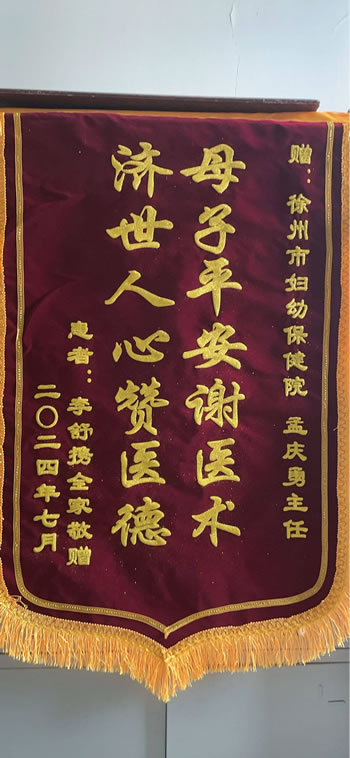 赠：徐州市妇幼保健院 孟庆勇主任
母子平安谢医术
济世人心赞医德
患者：李舒携全家敬赠
二〇二四年七月